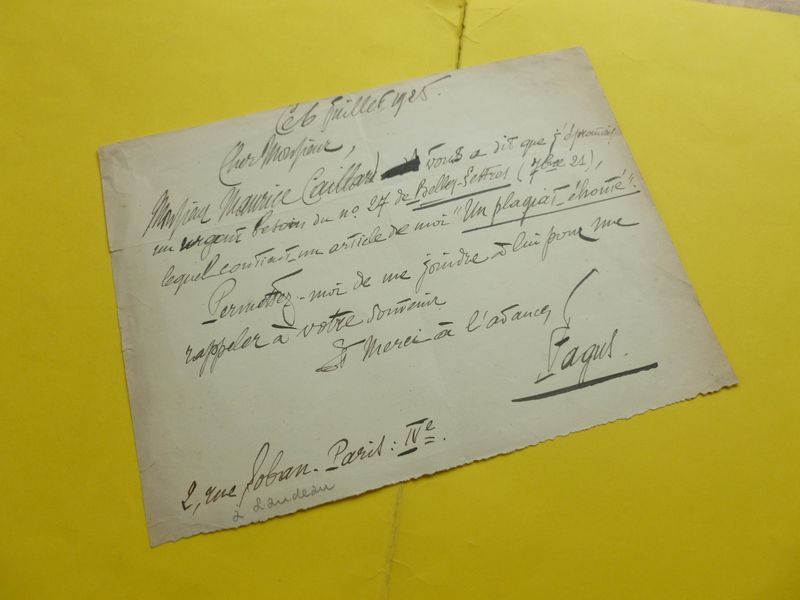 Ce 6 Juillet 1925.
Cher Monsieur,
Monsieur Maurice Caillard vous a dit que j'éprouvais
un urgent besoin du no 27 de Belles-Lettres (7bre 21),
lequel contient un article de moi "Un plagiat éhonté".
Permettez-moi de me joindre à lui pour me
rappeler à votre souvenir
Et Merci à l'avance,
Fagus.
2, rue Lobau. Paris: IVe.
à Landeau